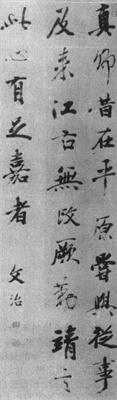 真卿昔在平原嘗與從事
及来江右無改厥勤靖言
此心有足嘉者
文治